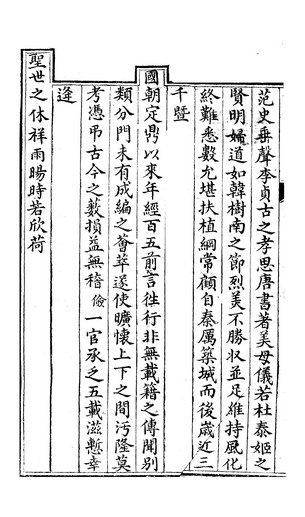 范史垂聲李貞古之孝思唐書著美母儀若杜泰姬之
賢明婦道如韓樹南之節烈美不勝収並足維持風化
終難悉數允堪扶植綱常顧自秦厲築城而後歲近三
千暨
國朝定鼎以來年經百五前言徃行非無載籍之傳聞別
類分門未有成編之薈萃遂使曠懷上下之間汚隆莫
考憑弔古今之藪損益無稽儉一官承乏五載滋慙幸
逢
聖世之休祥雨暘時若欣荷